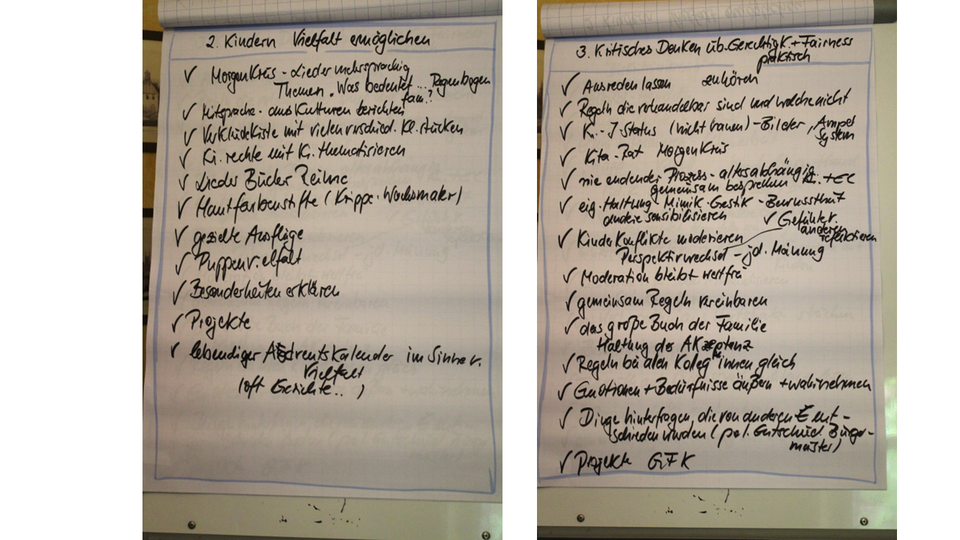 2. Kindern Vielfalt ermöglichen
✓ Morgenkreis - Lieder mehrsprachig
Themen. Was bedeutet ... Regenbogen
fam.?
✓ Mitsprache - aus Kulturen berichten
✓ Verkleidekiste mit vielen verschied. Kl. stücken
✓ Ki. rechte mit Ki. thematisieren
✓ Lieder Bücher Reime
✓ Hautfarbenstifte (Krippe - Wachsmaler)
✓ gezielte Ausflüge
✓ Puppenvielfalt
✓ Besonderheiten erklären
✓ Projekte
✓ lebendiger Adventskalender im Sinne v.
Vielfalt
(oft Gerichte . . )
3. Kritisches Denken üb. Gerechtigk. + Fairness
praktisch
✓ Ausreden lassen zuhören
✓ Regeln die verhandelbar sind und welche nicht
✓ K.. - J-Status (nicht bauen) - Bilder, Ampel
System
✓ Kita-Rat Morgenkreis
✓ nie endender Prozess - altersabhängig
gemeinsam besprechen K.. + EL
✓ eig. Haltung Mimik. Gestik - Bewusstheit
andere sensibilisieren
✓ Gefühle v.
anderen
reflektieren
✓ Kinder Konflikte moderieren
Perspektivwechsel - jd. Meinung
✓ Moderation bleibt wertfrei
✓ gemeinsam Regeln vereinbaren
✓ das große Buch der Familie
Haltung der Akzeptanz
✓ Regeln bei allen Kolleg*innen gleich
✓ Emotionen + Bedürfnisse äußern + wahrnehmen
✓ Dinge hinterfragen, die von anderen ent-
schieden wurden (pol. Entscheid. Bürger-
meister)
✓ Projekte GFK